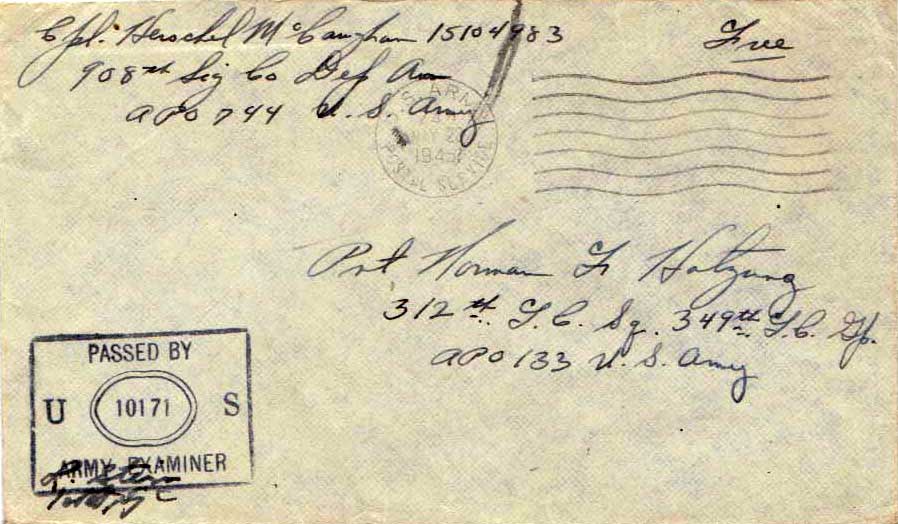 Cpl. Herschel McCaughan 15104983
908th Sig Co Dep Avn
APO 744 U. S. Army
Free
U. S. ARMY
MAY
1945
POSTAL SERVICE
Pvt Norman F. Holtzung
312th T. C. Sq. 349th T. C. Gp.
APO 133 U. S. Army
PASSED BY
U 10171 S
ARMY EXAMINER